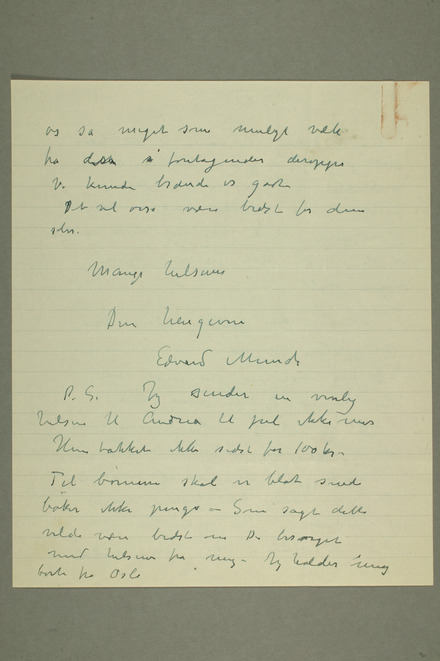 os så meget som muligt væk
fra disse foretagender deroppe
Vi kunde brænde os godt
Det vil også være bedst for dem
selv.
Mange hilsener
Din hengivne
Edvard Munch
P.S. Jeg sender en venlig
hilsen til Andrea til jul ikke mer
Hun takket ikke sidst for 100 kr –
Til børnene skal vi blot sende
bøker ikke penge – Som sagt dette
vilde være bedst om Du besørget
med hilsener fra mig – Jeg holder mig
borte fra Oslo